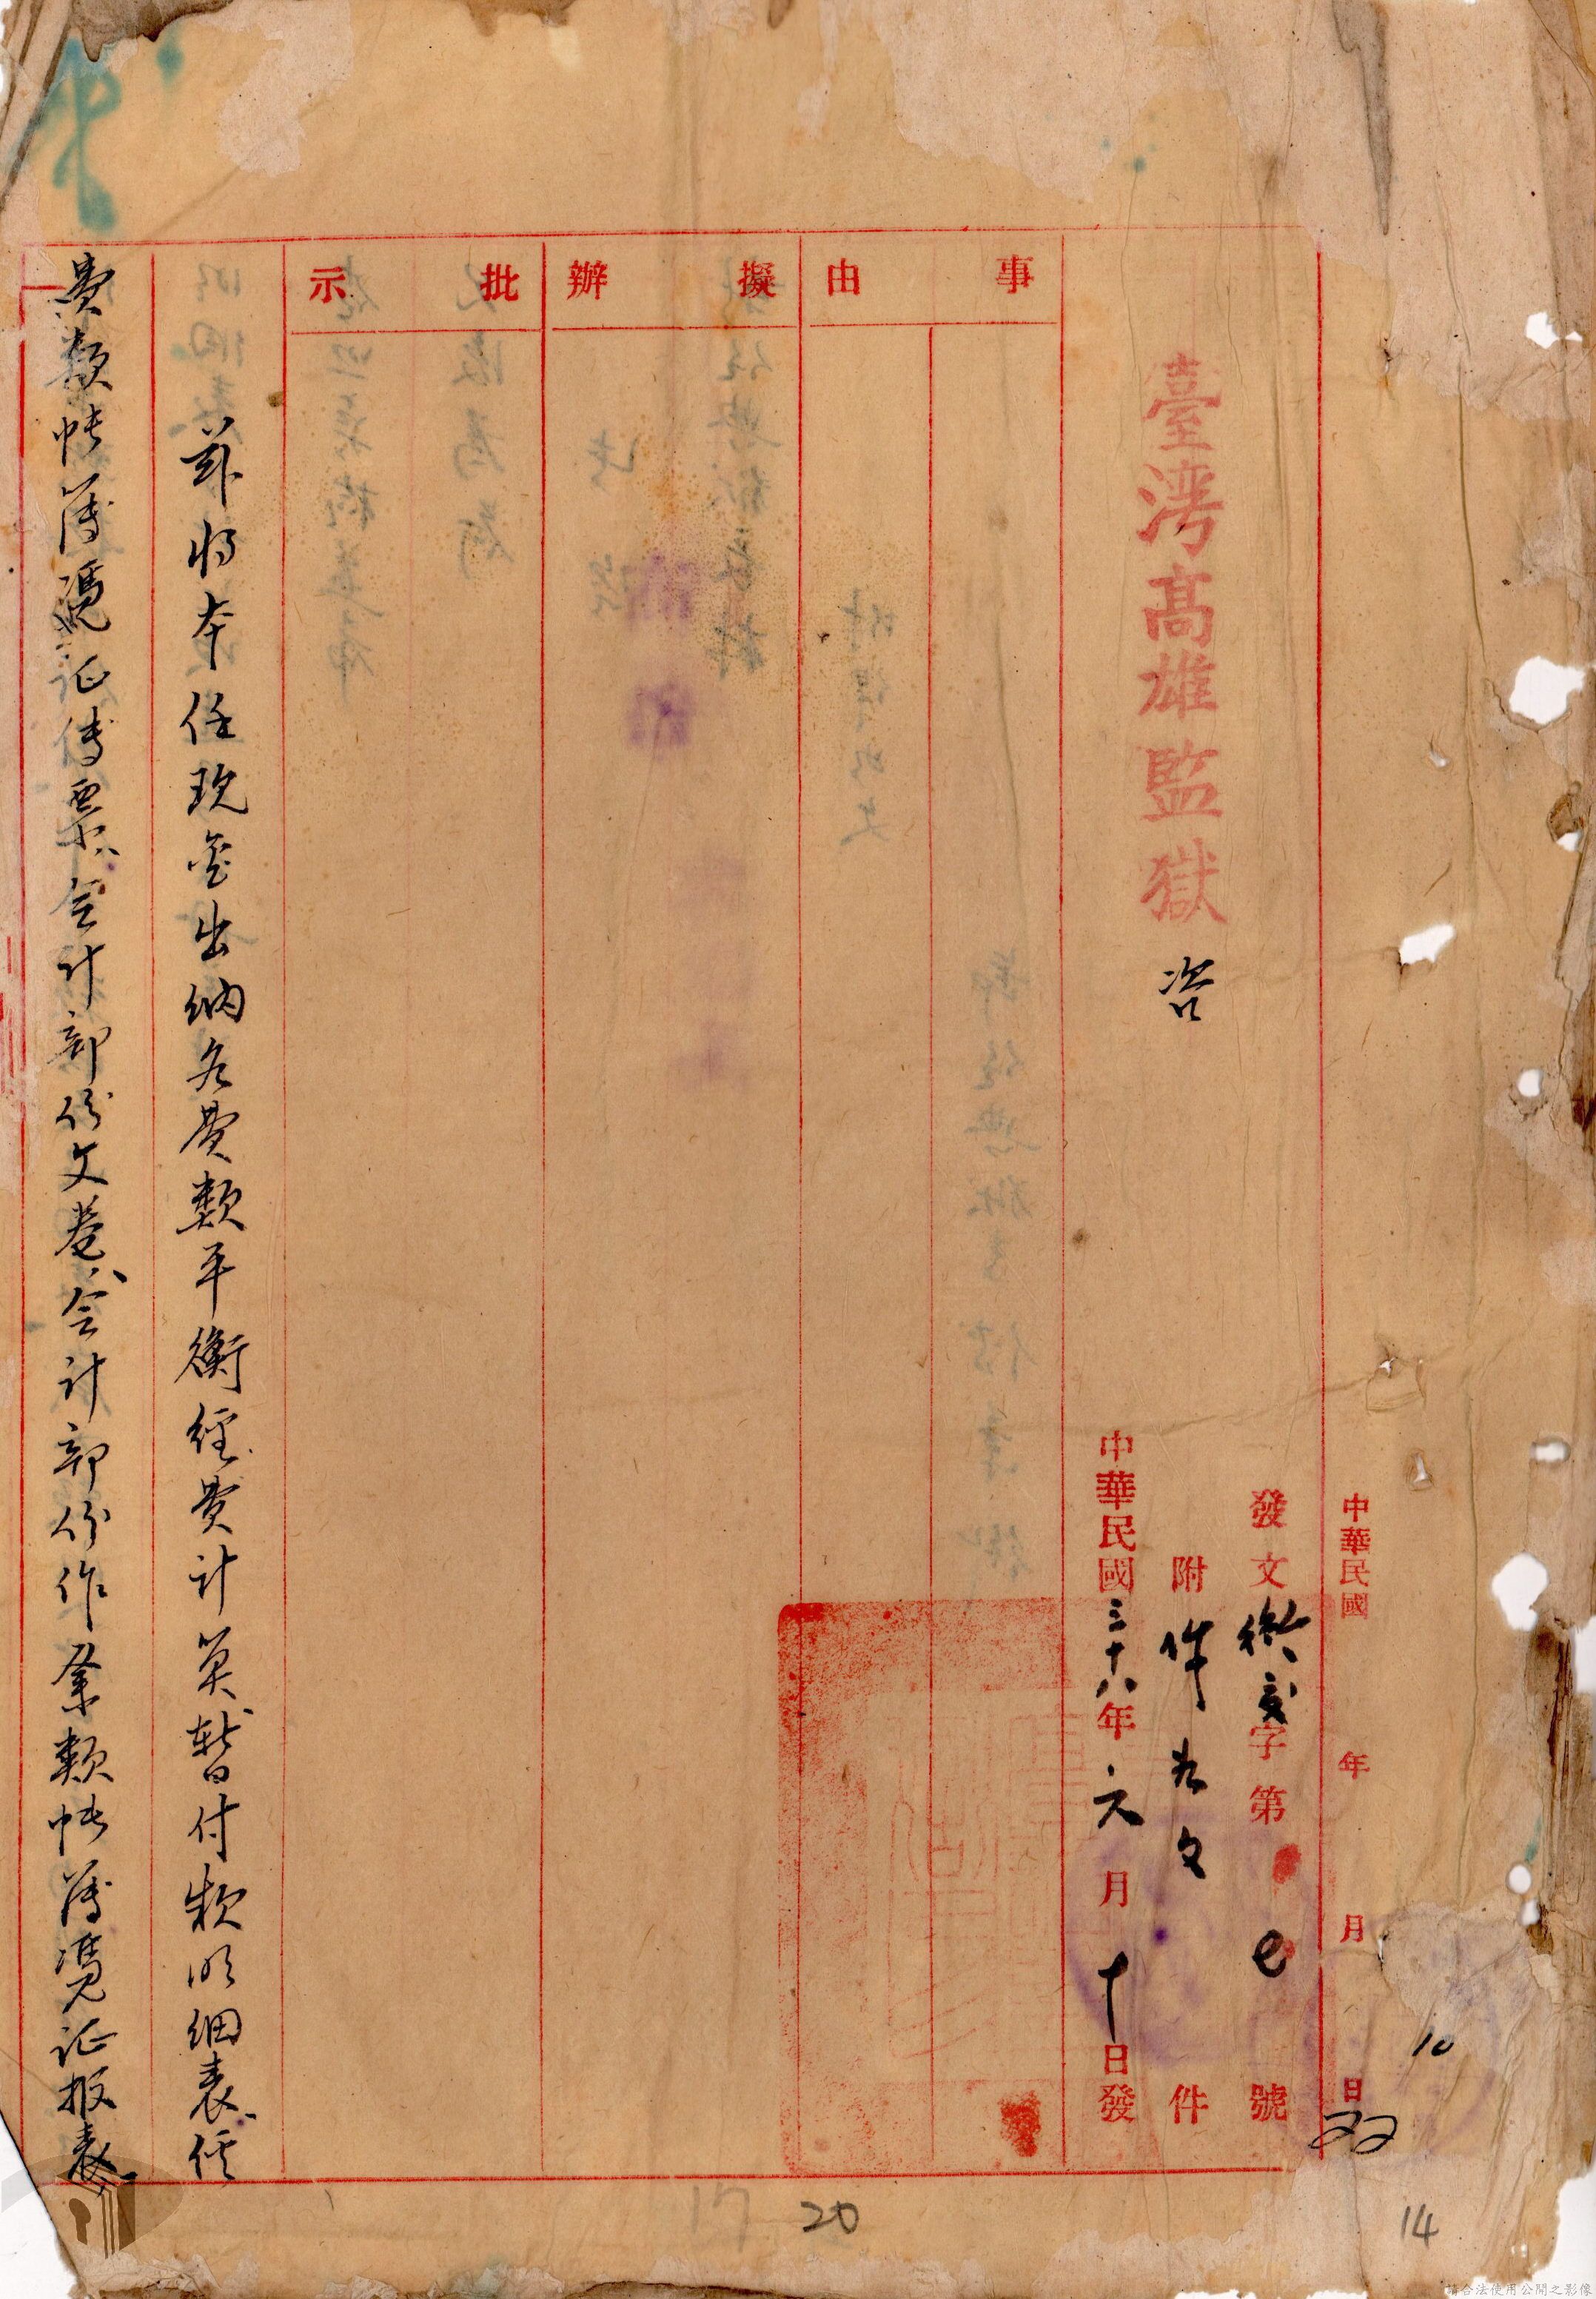 中華民國 年 月 日
發文 字第 七 號
附件 件
臺灣高雄監獄 咨
中華民國三十八年六月十日發
事由
擬辦
批示
茲將本任現金出納各費類平衡經費計算暫付款明細表經
費類帳簿憑证傳票会計部份文卷会計部份作業類帳簿憑证报表
10
20
14
請合法使用公開之影像